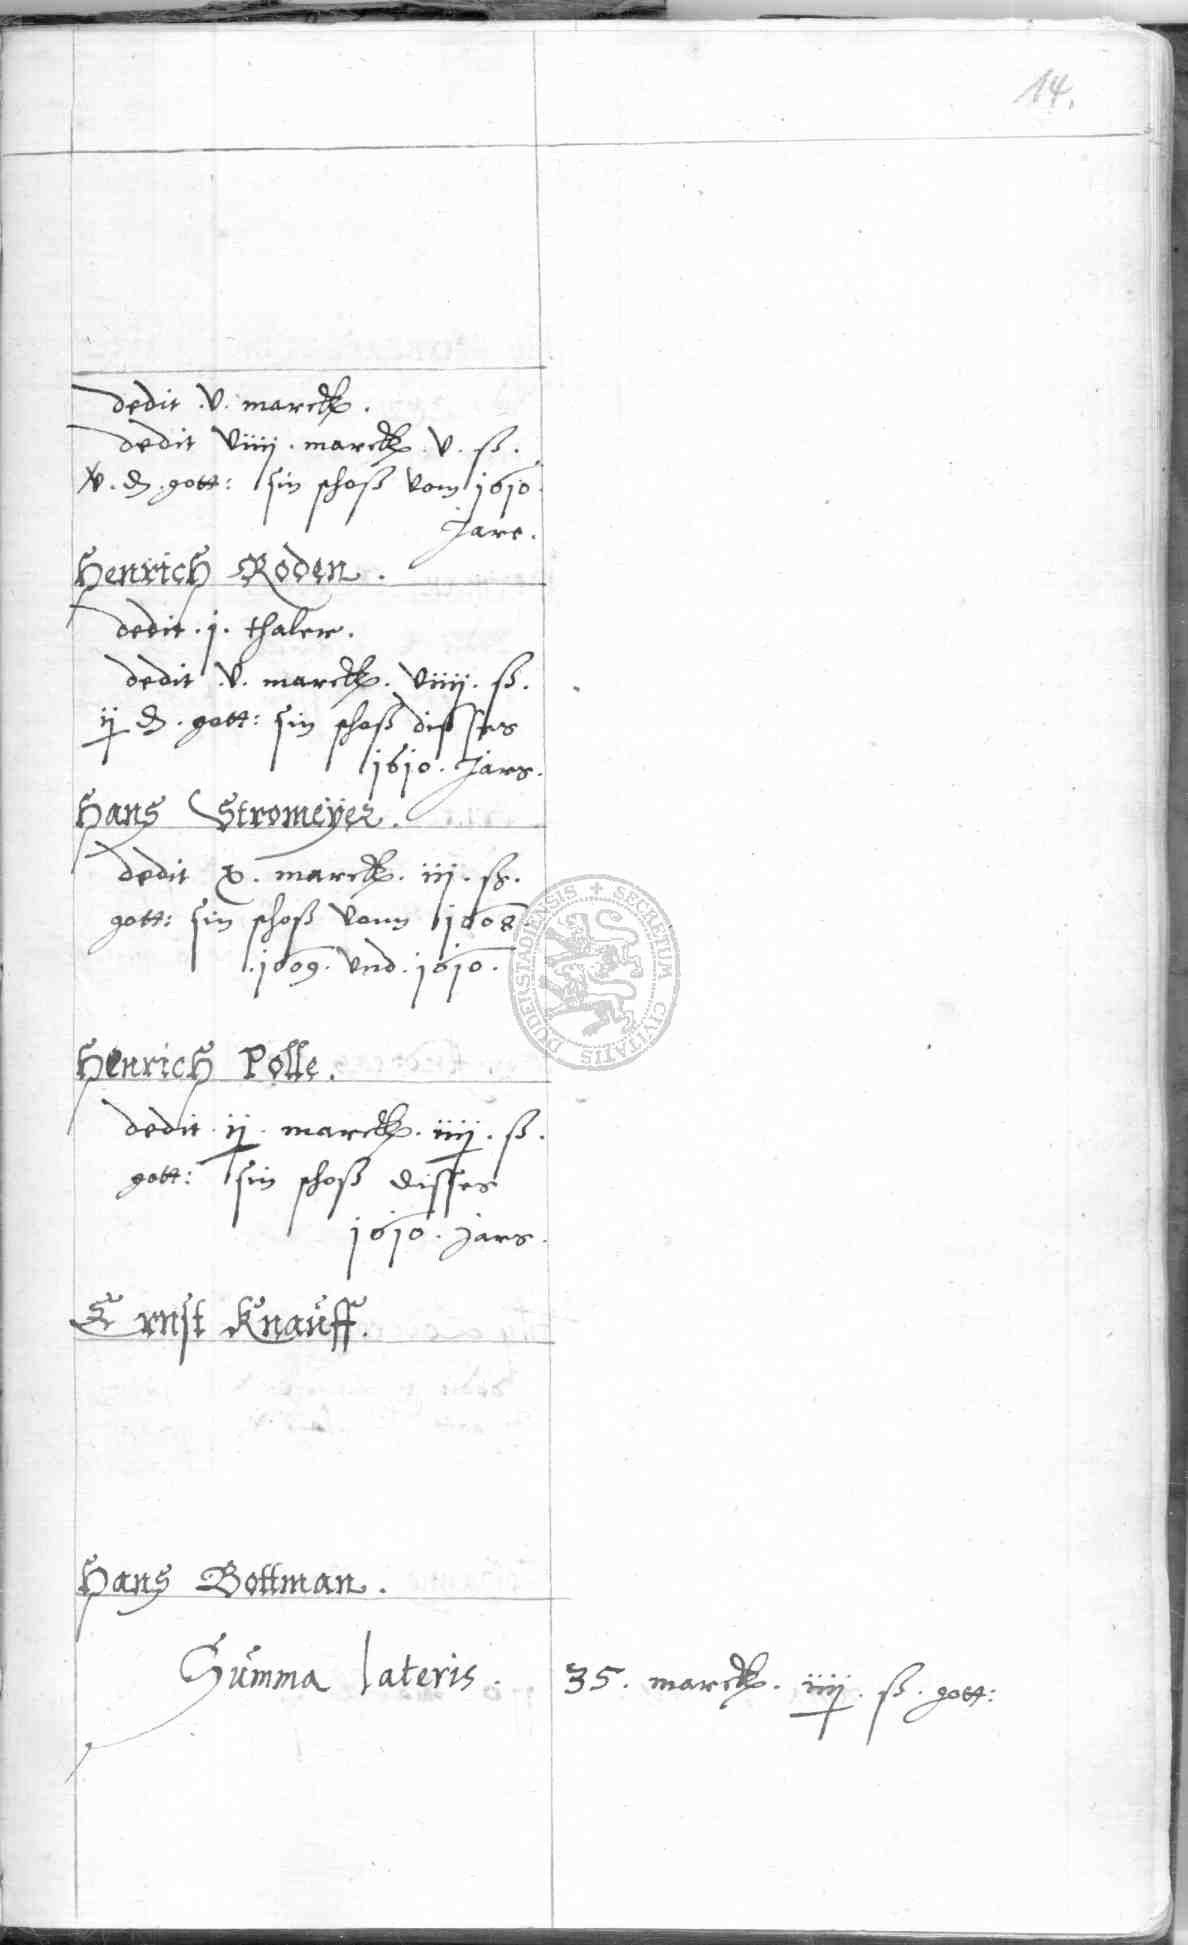 14.
dedit .v. marck.
dedit viiij. marck. v. ß.
v. d. gott: sin schoß vom 1610.
Jare.
Henrich Roden.
dedit .j. thaler.
dedit .v. marck. viiij. ß.
ij d. gott: sin schoß disses
1610. Jars.
Hans Stromeÿer.
dedit x. marck. iij. ß.
gott: sin schoß vonn 1608.
.1609. vnd .1610.
Henrich Polle.
dedit .ij. marck. iiij. ß.
gott: sin schoß disses
1610. jars.
Ernst Knauff.
Hans Bottman.
Summa lateris. 35. marck. iiij. ß. gott:
SECRETUM CIVITATIS DUDERSTADIENSIS